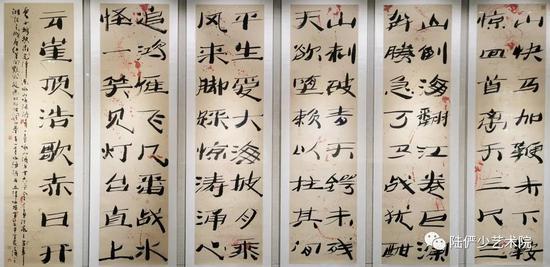 山快马加鞭未下鞍
惊回首离天三尺三
山倒海翻江卷巨澜
奔腾急万马战犹酣
山刺破青天锷未残
天欲堕赖以柱其间
平生爱大海披月乘
风来脚踩惊涛涌心
追鸿雁飞几番战水
怪一笑见灯台直上
云崖顶浩歌赤日开
陆俨少艺术院